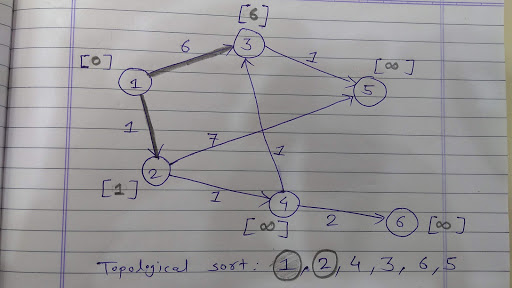 [6]
6
3
1
[0]
[∞]
1
5
7
1
1
2
[1]
1
4
2
6
[∞]
[∞]
Topological sort: 1, 2, 4, 3, 6, 5